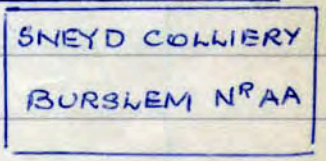 SNEYD COLLIERY
BURSLEM Nᴿ AA